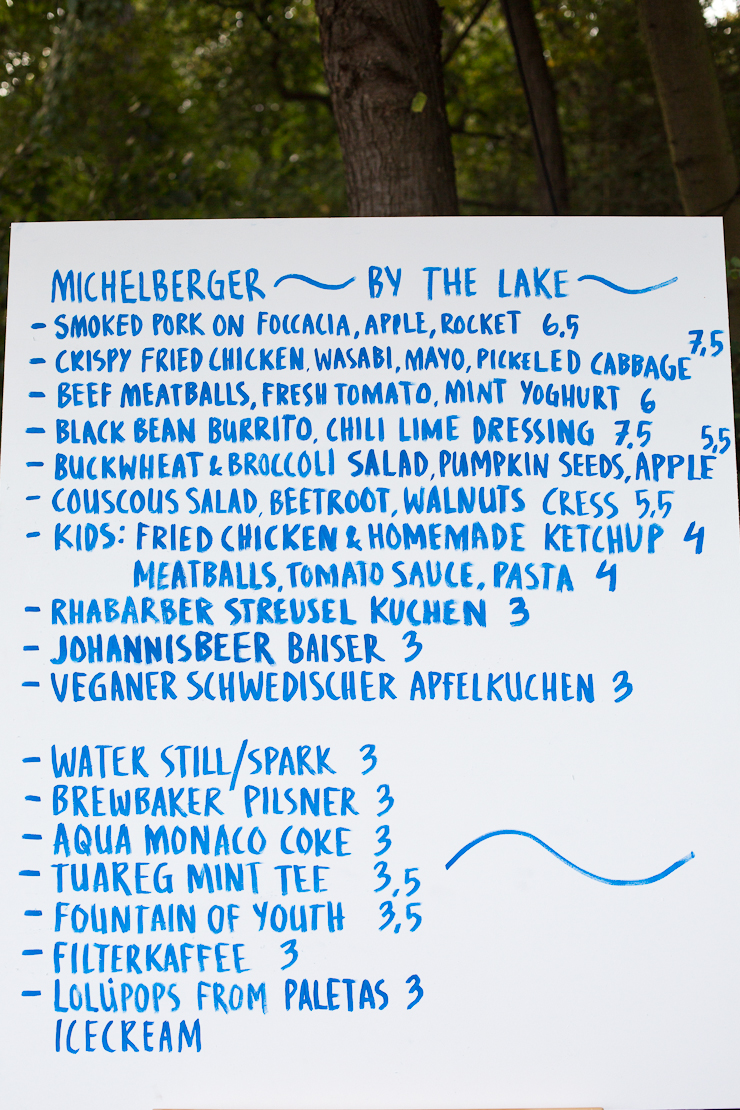 MICHELBERGER BY THE LAKE
- SMOKED PORK ON FOCCACIA, APPLE, ROCKET 6,5
- CRISPY FRIED CHICKEN, WASABI, MAYO, PICKELED CABBAGE 7,5
- BEEF MEATBALLS, FRESH TOMATO, MINT YOGHURT 6
- BLACK BEAN BURRITO, CHILI LIME DRESSING 7.5
- BUCKWHEAT & BROCCOLI SALAD, PUMPKIN SEEDS, APPLE 5,5
- COUSCOUS SALAD, BEETROOT, WALNUTS CRESS 5,5
- KIDS: FRIED CHICKEN & HOMEMADE KETCHUP 4
MEATBALLS, TOMATO SAUCE, PASTA 4
- RHABARBER STREUSEL KUCHEN 3
- JOHANNISBEER BAISER 3
- VEGANER SCHWEDISCHER APFELKUCHEN 3
- WATER STILL/SPARK 3
- BREWBAKER PILSNER 3
- AQUA MONACO COKE 3
- TUAREG MINT TEE 3,5
- FOUNTAIN OF YOUTH 3,5
- FILTERKAFFEE 3
- LOLLIPOPS FROM PALETAS 3
ICECREAM